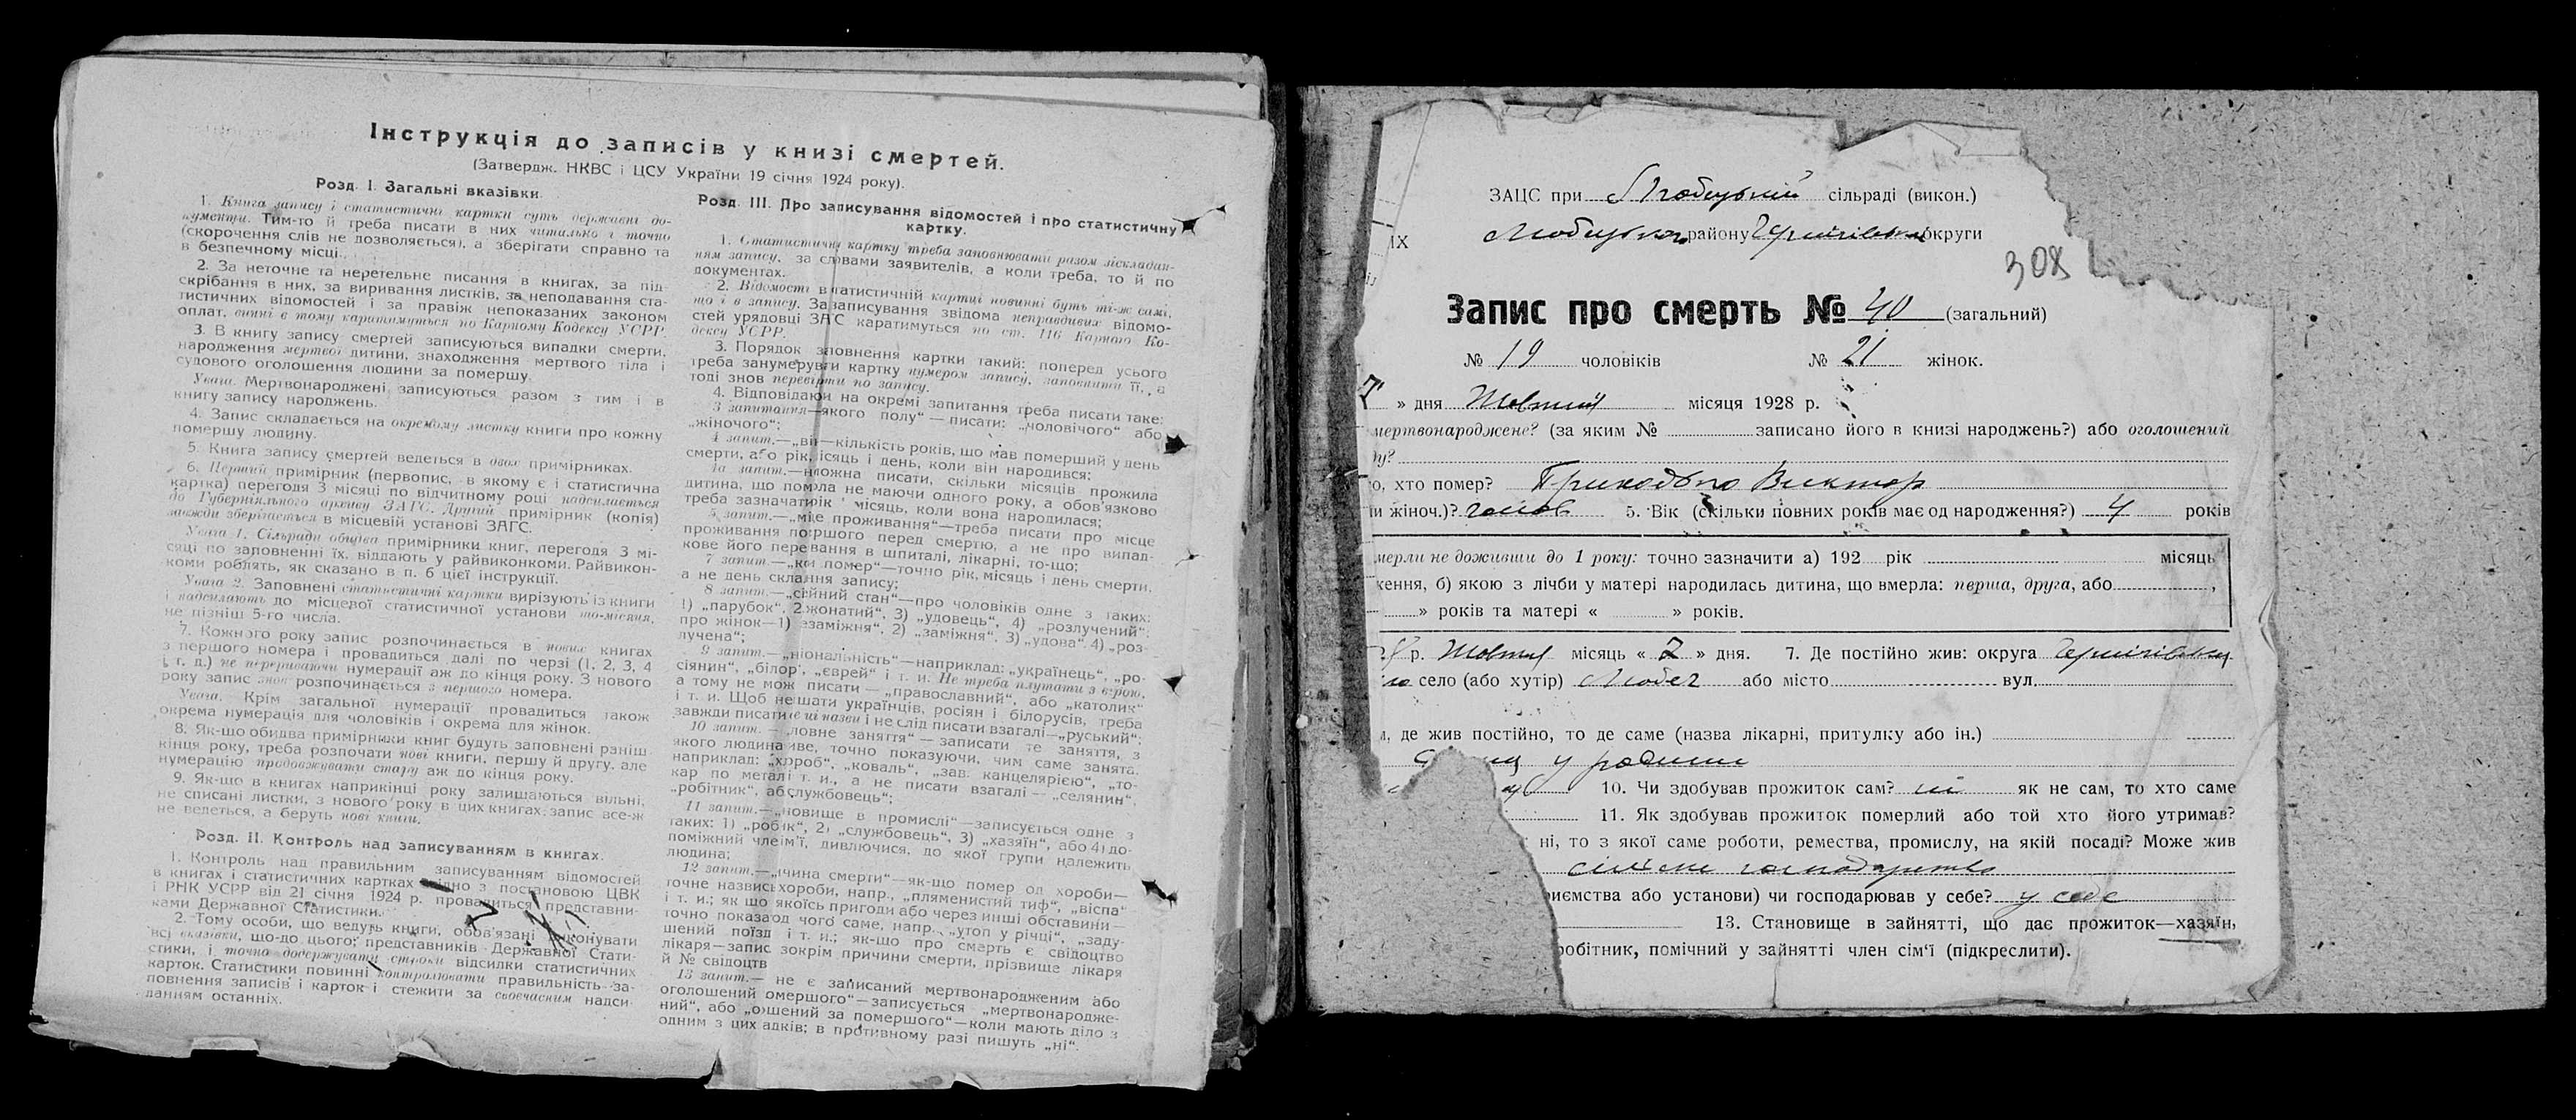 Інструкція до записів у книзі смертей.
(Затвердж. НКВС і ЦСУ України 19 січня 1924 року).
Розд. I. Загальні вказівки.
1. Книга запису і статистичні картки суть державні до-
кументи. Тим-то й треба писати в них читально і точно
(скорочення слів не дозволяється), а зберігати справно та
в безпечному місці.
2. За неточне та неретельне писання в книгах, за під-
скрібання в них, за виривання листків, за неподавання ста-
тистичних відомостей і за правіж непоказаних законом
оплат, винні в тому каратимуться по Карному Кодексу УСРР.
3. В книгу запису смертей записуються випадки смерти,
народження мертвої дитини, знаходження мертвого тіла і
судового оголошення людини за помершу.
Увага. Мертвонароджені записуються разом з тим і в
книгу запису народжень.
4. Запис складається на окремому листку книги про кожну
помершу людину.
5. Книга запису смертей ведеться в двох примірниках.
6. Перший примірник (первопис, в якому є і статистична
картка) перегодя 3 місяці по відчитному році надсилається
до Губерніяльного архиву ЗАГС. Другий примірник (копія)
завжди зберігається в місцевій установі ЗАГС.
Увага 1. Сільради обидва примірники книг, перегодя 3 мі-
сяці по заповненні їх, віддають у райвиконкоми. Райвикон-
коми роблять, як сказано в п. 6 цієї інструкції.
Увага 2. Заповнені статистичні картки вирізують із книги
і надсилають до місцевої статистичної установи що-місяця,
не пізніш 5-го числа.
7. Кожного року запис розпочинається в нових книгах
з першого номера і провадиться далі по черзі (1, 2, 3, 4
і т. д.) не перериваючи нумерації аж до кінця року. З нового
року запис знов розпочинається з першого номера.
Увага. Крім загальної нумерації провадиться також
окрема нумерація для чоловіків і окрема для жінок.
8. Як-що обидва примірники книг будуть заповнені раніш
кінця року, треба розпочати нові книги, першу й другу, але
нумерацію продовжувати стару аж до кінця року.
9. Як-що в книгах наприкінці року залишаються вільні,
не списані листки, з нового року в цих книгах запис все-ж
не ведеться, а беруть нові книги.
Розд. II. Контроль над записуванням в книгах.
1. Контроль над правильним записуванням відомостей
в книгах і статистичних картках з постановою ЦВК
і РНК УСРР від 21 січня 1924 р. провадиться представни-
ками Державної Статистики.
2. Тому особи, що ведуть книги, обов'язані виконувати
всі вказівки, що-до цього, представників Державної Стати-
стики, і точно додержувати строки відсилки статистичних
карток. Статистики повинні контролювати правильність за-
повнення записів і карток і стежити за своєчасним надси-
данням останніх.
Розд. III. Про записування відомостей і про статистичну
картку.
1. Статистичну картку треба заповнювати разом зіскладан-
ням запису, за словами заявителів, а коли треба, то й по
документах.
2. Відомості в татистичній картці повинні буть ті-ж самі,
що і в запису. За записування звідома неправдивих відомо-
стей урядовці ЗАГС каратимуться по ст. 116 Карного Ко-
дексу УСРР.
3. Порядок заповнення картки такий: поперед усього
треба занумерувати картку нумером запису, заповнити її, а
тоді знов перевірити по запису.
4. Відповідаючи на окремі запитання треба писати таке:
3 запитання—якого полу" — писати: „чоловічого" або
„жіночого";
4 запит.—„вік—кількість років, що мав померший у день
смерти, або рік, ісяць і день, коли він народився;
4а запит.—можна писати, скільки місяців прожила
дитина, що померла не маючи одного року, а обов'язково
треба зазначати рік місяць, коли вона народилася;
5 запит.—„міце проживання"—треба писати про місце
проживання першого перед смертю, а не про випад-
кове його перевання в шпиталі, лікарні, то-що;
7 запит.—„ки помер"—точно рік, місяць і день смерти,
а не день складання запису;
8 запит.—„сійний стан"—про чоловіків одне з таких:
1) „парубок", 2 жонатий", 3) „удовець", 4) „розлучений";
про жінок—1) езаміжня", 2) „заміжня", 3) „удова", 4) „роз-
лучена";
9 запит.—„ніональність"—наприклад: „українець", „ро-
сіянин", „білор, „єврей" і т. и. Не треба плутати з вірою,
а тому не мож писати — „православний", або „католик"
і т. и. Щоб не шати українців, росіян і білорусів, треба
завжди писати ці назви і не слід писати взагалі—„руський";
10 запит. — ловне заняття" — записати те заняття, з
якого людина иве, точно показуючи, чим саме занята,
наприклад: „хороб", „коваль", „зав. канцелярією", „то-
кар по металі т. и., а не писати взагалі — „селянин",
„робітник", аб службовець";
11 запит.—„новище в промислі"—записується одне з
таких: 1) „робік", 2) „службовець", 3) „хазяїн", або 4) до-
поміжний член ім'ї, дивлючися, до якої групи належить
людина;
12 запит.—„чина смерти"—як-що помер од хороби—
точне назвись хороби, напр., „пляменистий тиф", „віспа"
і т. и.; як що якоїсь пригоди або через инші обставини—
точно показа од чого саме, напр., „утоп у річці", „заду-
шений поїзд і т. и.; як-що про смерть є свідоцтво
лікаря—запис зокрім причини смерти, прізвище лікаря
й № свідоцтв
13 запит.— не є записаний мертвонародженим або
оголошений омершого"—записується „мертвонародже-
ний", або „ошений за помершого"—коли мають діло з
одним з цих адків; в противному разі пишуть „ні".
ЗАЦС при Любецький сільраді (викон.)
IX Любецького району Чернігівськ округи
308
Запис про смерть № 40 (загальний)
№ 19 чоловіків № 21 жінок.
7 » дня Жовтня місяця 1928 р.
мертвонароджене? (за яким № записано його в книзі народжень?) або оголошений
у?
о, хто помер? Приходько Виктор
и жіноч.)? чолов 5. Вік (скільки повних років має од народження?) 4 років
мерли не доживши до 1 року: точно зазначити а) 192 рік місяць
ження, б) якою з лічби у матері народилась дитина, що вмерла: перша, друга, або ,
» років та матері « » років.
р. Жовтня місяць « 7 » дня. 7. Де постійно жив: округа Чернігівськ
го село (або хутір) Любеч або місто вул.
, де жив постійно, то де саме (назва лікарні, притулку або ін.)
у родини
10. Чи здобував прожиток сам? ні як не сам, то хто саме
11. Як здобував прожиток померлий або той хто його утримав?
ні, то з якої саме роботи, ремества, промислу, на якій посаді? Може жив
сільське господарство
риємства або установи) чи господарював у себе? у себе
13. Становище в зайнятті, що дає прожиток—хазяїн,
робітник, помічний у зайнятті член сім'ї (підкреслити).